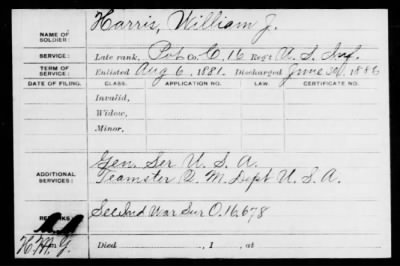 NAME OF SOLDIER: Harris, William J.
SERVICE: Late rank, Pvt Co. C, 16 Reg't U. S. Inf.
TERM OF SERVICE: Enlisted Aug 6, 1881. Discharged June 30, 1886
DATE OF FILING. CLASS. APPLICATION NO. LAW. CERTIFICATE NO.
Invalid,
Widow,
Minor,
ADDITIONAL SERVICES: Gen. Ser U. S. A.
Teamster Q. M. Dept U. S. A.
REMARKS: See Ind War Sur O. 16,678
H. M. G.
Died , 1 , at